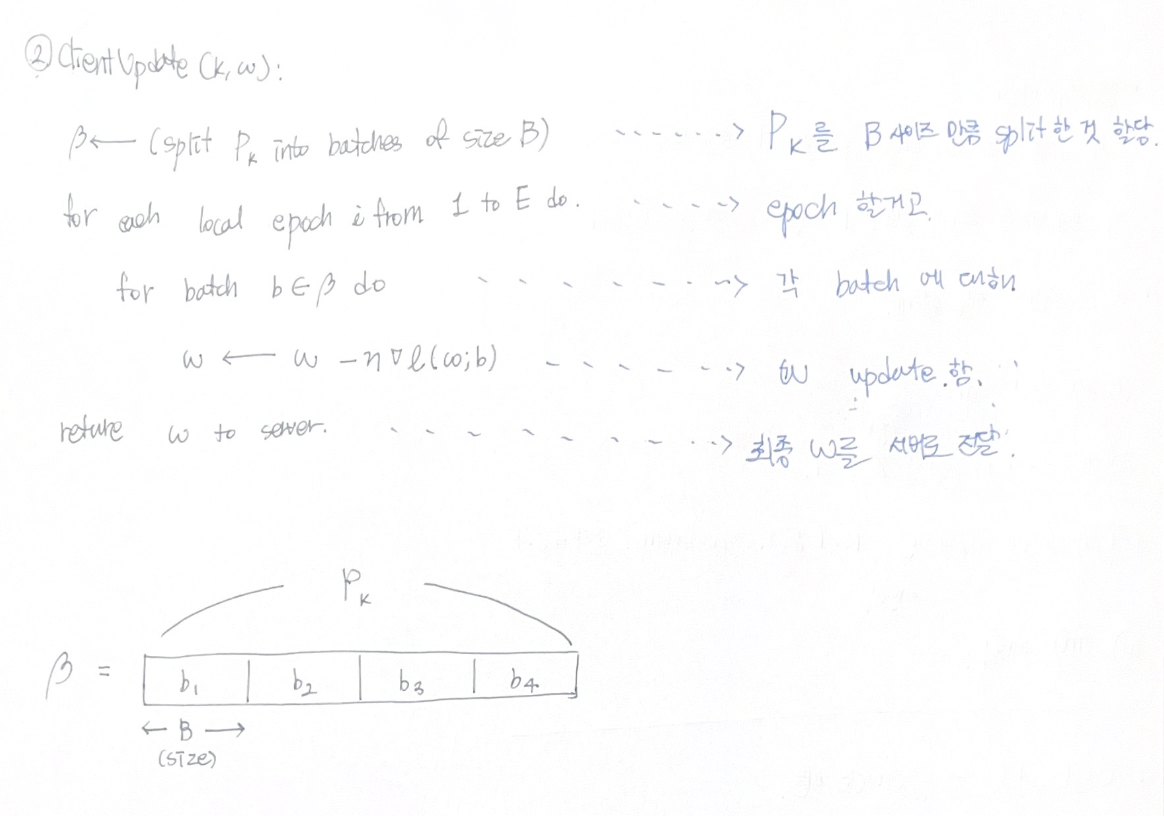 ② ClientUpdate (k, w) :
β ← (split P_k into batches of size B) ------> P_k를 B 사이즈 만큼 split 한 것 할당.
for each local epoch i from 1 to E do. ----> epoch 할거고.
for batch b ∈ β do -------> 각 batch 에 대해
w ← w - η∇l(w;b) ------> w update 함.
return w to server. --------> 최종 w를 서버로 전달.
P_k
β = b₁ b₂ b₃ b₄
← B →
(size)